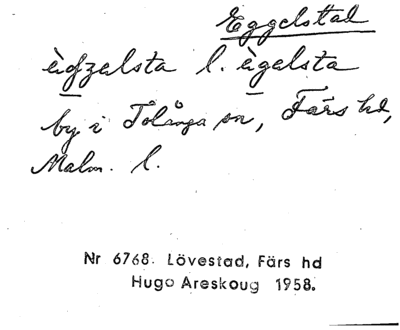 Eggelstad
èǥzelsta l. ègelsta
by i Tolånga sn, Färs hd,
Malm. l.
Nr 6768. Lövestad, Färs hd
Hugo Areskoug 1958.